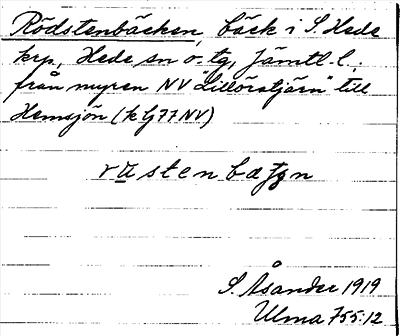 Rödstenbäcken, bäck i S. Hede
krp, Hede sn o. tg, Jämtl. l.
från myren NV "Lillörstjärn" till
Hemsjön (k lj 77 NV)
S. Åsander 1919
Ulma 755:12